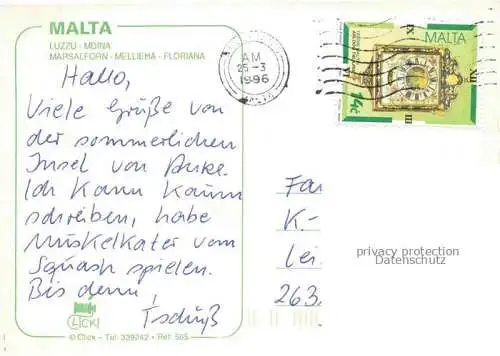 MALTA
LUZZU - MDINA
MARSALFORN - MELLIEHA - FLORIANA
Hallo,
Viele Grüße von
der sommerlichen
Insel von Anke.
Ich kann kaum
schreiben, habe
Muskelkater vom
Squash spielen.
Bis denn,
Tschüß
CLICK!
© Click - Tel: 339242 - Ref: 565
AM
25-3
1996
MALTA
14c
IX
XII
III
K.-
Lei
263
privacy protection
Datenschutz